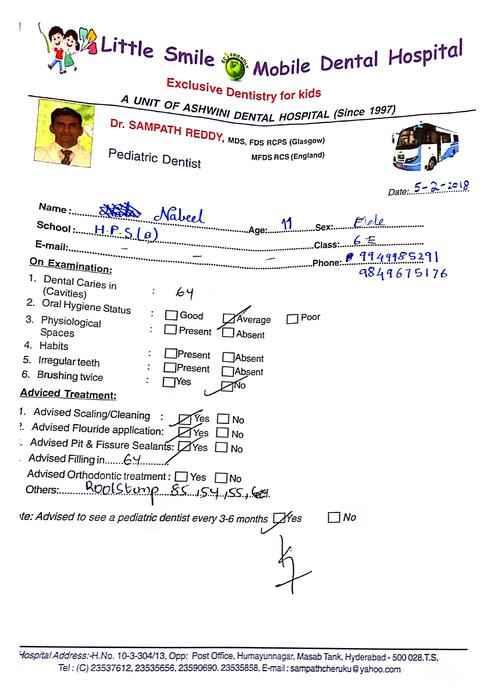 Little Smile ECO FRIENDLY Mobile Dental Hospital
Exclusive Dentistry for kids
A UNIT OF ASHWINI DENTAL HOSPITAL (Since 1997)
Dr. SAMPATH REDDY, MDS, FDS RCPS (Glasgow)
MFDS RCS (England)
Pediatric Dentist
Date: 5-2-2018
Name: Nabeel Age: 11 Sex: Male
School: H.P.S.(B) Class: 6 E
E-mail: – – – Phone: 9949985291
9849675176
On Examination:
1. Dental Caries in (Cavities) : 64
2. Oral Hygiene Status : Good Average Poor
3. Physiological Spaces : Present Absent
4. Habits : Present Absent
5. Irregular teeth : Present Absent
6. Brushing twice : Yes No
Adviced Treatment:
1. Advised Scaling/Cleaning : Yes No
2. Advised Flouride application: Yes No
. Advised Pit & Fissure Sealants: Yes No
. Advised Filling in 64
Advised Orthodontic treatment : Yes No
Others: Root Stump 85, 54, 55,
ote: Advised to see a pediatric dentist every 3-6 months Yes No
Hospital Address:-H.No. 10-3-304/13, Opp: Post Office, Humayunnagar, Masab Tank, Hyderabad - 500 028.T.S.
Tel : (C) 23537612, 23535656, 23590690. 23535858, E-mail : sampathcheruku@yahoo.com